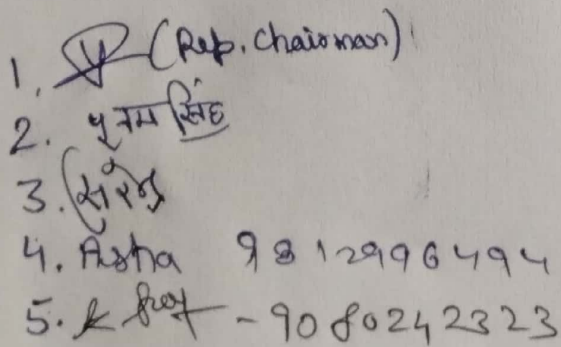 1. (Rep. Chairman)
2. पूनम सिंह
3. सुरेन्द्र
4. Asha 9812996494
5. - 9080242323